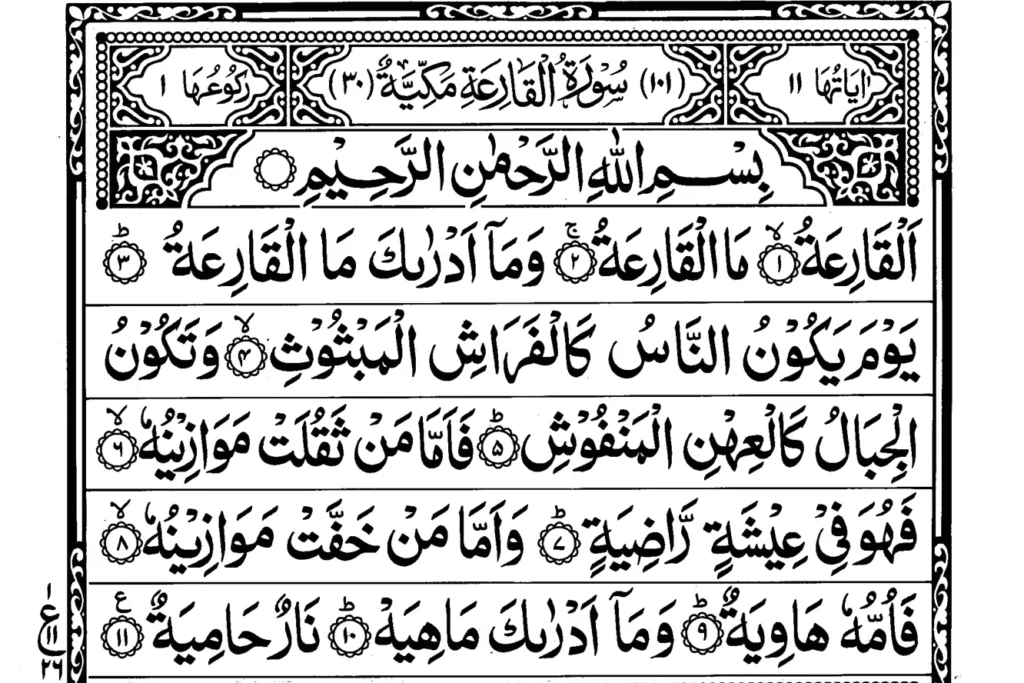 اٰيَاتُهَا ١١ (١٠١) سُوْرَةُ الْقَارِعَةِ مَكِّيَّةٌ (٣٠) رُكُوْعُهَا ١
بِسْمِ اللّٰهِ الرَّحْمٰنِ الرَّحِيْمِ
اَلْقَارِعَةُ ۙ﴿١﴾ مَا الْقَارِعَةُ ۚ﴿٢﴾ وَمَاۤ اَدْرٰىكَ مَا الْقَارِعَةُ ؕ﴿٣﴾
يَوْمَ يَكُوْنُ النَّاسُ كَالْفَرَاشِ الْمَبْثُوْثِ ۙ﴿۴﴾ وَتَكُوْنُ
الْجِبَالُ كَالْعِهْنِ الْمَنْفُوْشِ ؕ﴿۵﴾ فَاَمَّا مَنْ ثَقُلَتْ مَوَازِيْنُهٗ ۙ﴿۶﴾
فَهُوَ فِىْ عِيْشَةٍ رَّاضِيَةٍ ؕ﴿۷﴾ وَاَمَّا مَنْ خَفَّتْ مَوَازِيْنُهٗ ۙ﴿۸﴾
فَاُمُّهٗ هَاوِيَةٌ ؕ﴿۹﴾ وَمَاۤ اَدْرٰىكَ مَاهِيَهْ ؕ﴿۱۰﴾ نَارٌ حَامِيَةٌ ﴿۱۱﴾ ع
١
ع ١١
٢٦